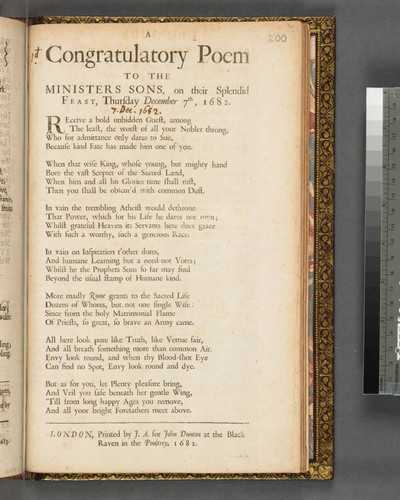 A
200
1d
Congratulatory Poem
TO THE
MINISTERS SONS, on their Splendid
FEAST, Thursday December 7th, 1682.
7. Dec. 1682.
REceive a bold unbidden Guest, among
The least, the worst of all your Nobler throng,
Who for admittance only dares to Sue,
Because kind Fate has made him one of you.
When that wise King, whose young, but mighty hand
Bore the vast Scepter of the Sacred Land,
When him and all his Glories time shall rust,
Then you shall be obscur'd with common Dust.
In vain the trembling Atheist would dethrone
That Power, which for his Life he dares not own;
Whilst grateful Heaven its Servants here does grace
With such a worthy, such a generous Race.
In vain on Inspiration t'other dotes,
And humane Learning but a need-not Votes;
Whilst he the Prophets Sons so far may find
Beyond the usual stamp of Humane kind.
More madly Rome grants to the Sacred Life
Dozens of Whores, but not one single Wife:
Since from the holy Matrimonial Flame
Of Priests, so great, so brave an Army came.
All here look pure like Truth, like Vertue fair,
And all breath something more than common Air.
Envy look round, and when thy Blood-shot Eye
Can find no Spot, Envy look round and dye.
But as for you, let Plenty pleasure bring,
And Veil you safe beneath her gentle Wing,
'Till from long happy Ages you remove,
And all your bright Forefathers meet above.
LONDON, Printed by J. A. for John Dunton at the Black
Raven in the Poultrey, 1682.